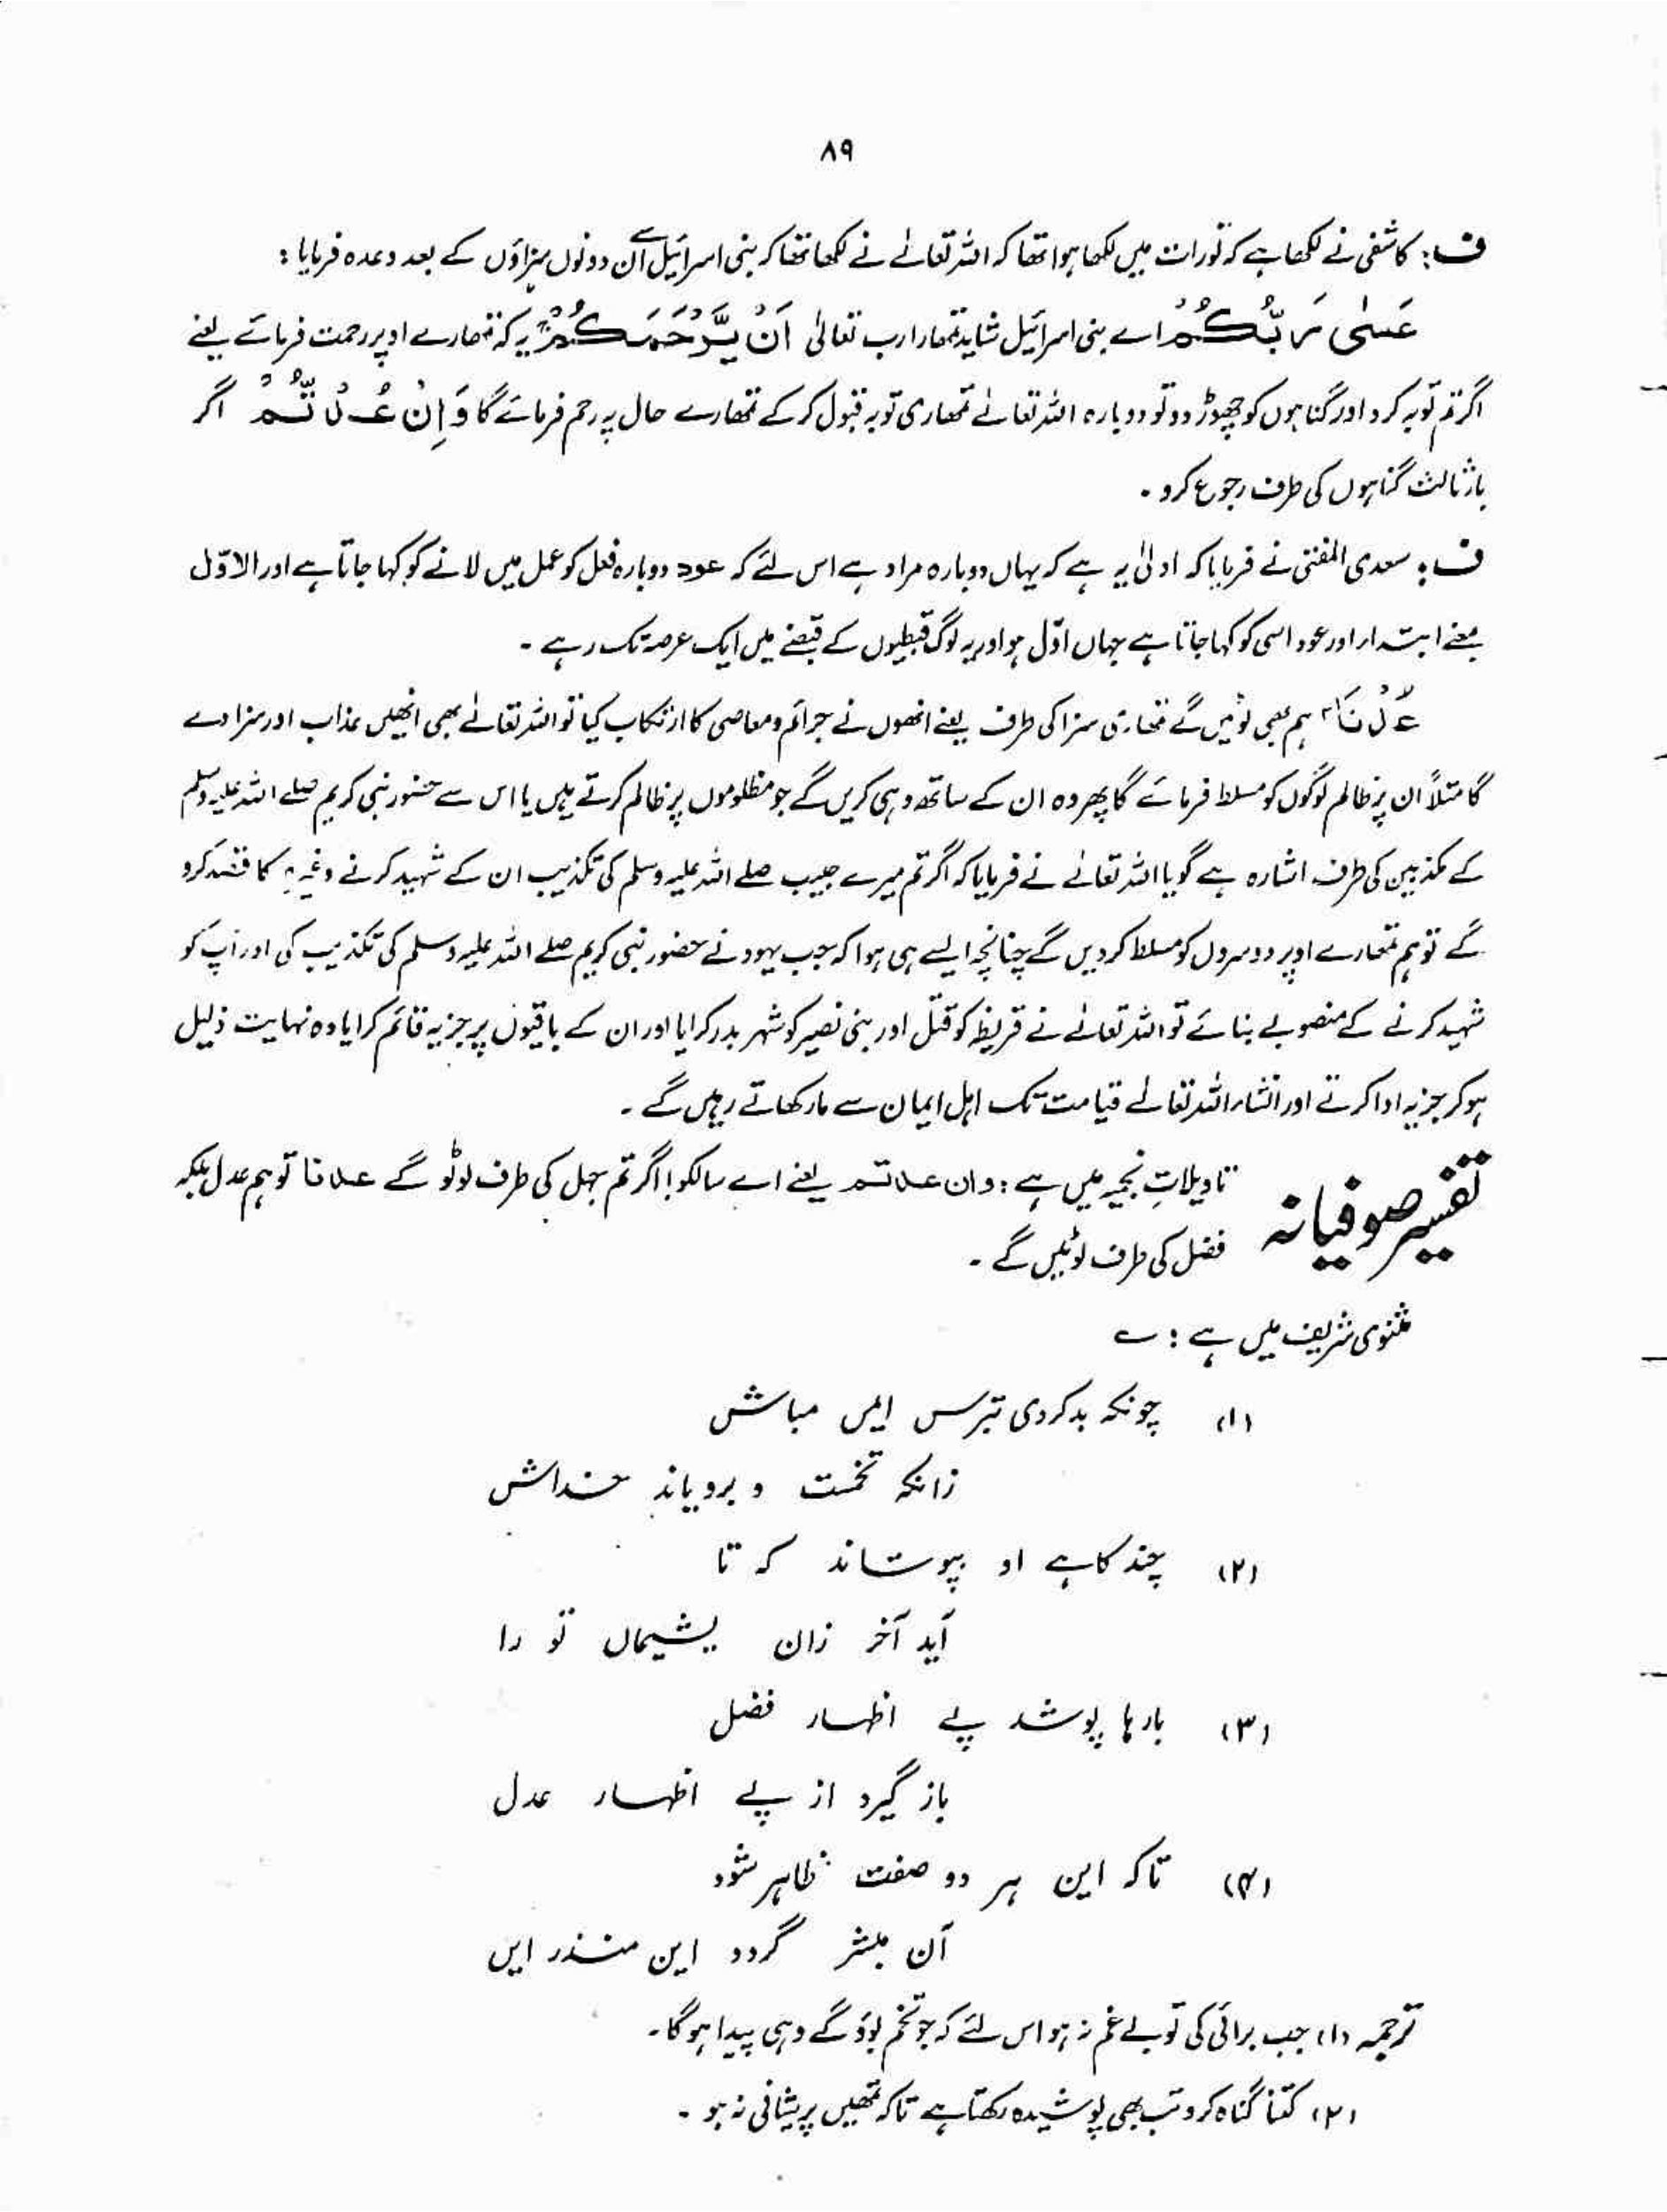 ۸۹
ف: کاشفی نے لکھا ہے کہ تورات میں لکھا ہوا تھا کہ اللہ تعالےٰ نے لکھا تھا کہ بنی اسرائیل سے ان دونوں سزاؤں کے بعد وعدہ فرمایا :
عَسٰی رَبُّكُمْ اے بنی اسرائیل شاید تمھارا رب تعالیٰ اَنْ یَّرْحَمَكُمْ یہ کہ تمھارے اوپر رحمت فرمائے یعنے
اگر تم توبہ کرو اور گناہوں کو چھوڑ دو تو دوبارہ اللہ تعالےٰ تمھاری توبہ قبول کر کے تمھارے حال پہ رحم فرمائے گا وَاِنْ عُدْتُّمْ اگر
بار ثالث گناہوں کی طرف رجوع کرو ۔
ف: سعدی المفتی نے فرمایا کہ اولیٰ یہ ہے کہ یہاں دوبارہ مراد ہے اس لئے کہ عود دوبارہ فعل کو عمل میں لانے کو کہا جاتا ہے اور الاوّل
بمعنے ابتداء اور عود اسی کو کہا جاتا ہے جہاں اوّل ہو اور یہ لوگ قبطیوں کے قبضے میں ایک عرصہ تک رہے ۔
عُدْنَا ہم بھی لوٹیں گے تمھاری سزا کی طرف یعنے انھوں نے جرائم و معاصی کا ارتکاب کیا تو اللہ تعالےٰ بھی انھیں عذاب اور سزا دے
گا مثلاً ان پر ظالم لوگوں کو مسلط فرمائے گا پھر وہ ان کے ساتھ وہی کریں گے جو مظلوموں پر ظالم کرتے ہیں یا اس سے حضور نبی کریم صلے اللہ علیہ وسلم
کے مکذبین کی طرف اشارہ ہے گویا اللہ تعالےٰ نے فرمایا کہ اگر تم میرے حبیب صلے اللہ علیہ وسلم کی تکذیب ان کے شہید کرنے وغیرہ کا قصد کرو
گے تو ہم تمھارے اوپر دوسروں کو مسلط کر دیں گے چنانچہ ایسے ہی ہوا کہ جب یہود نے حضور نبی کریم صلے اللہ علیہ وسلم کی تکذیب کی اور آپ کو
شہید کرنے کے منصوبے بنائے تو اللہ تعالےٰ نے قریظہ کو قتل اور بنی نضیر کو شہر بدر کرایا اور ان کے باقیوں پر جزیہ قائم کرایا وہ نہایت ذلیل
ہو کر جزیہ ادا کرتے اور انشاء اللہ تعالےٰ قیامت تک اہل ایمان سے مار کھاتے رہیں گے ۔
تفسیر صوفیانہ تاویلاتِ نجمیہ میں ہے : وان عدتم یعنے اے سالکو! اگر تم جہل کی طرف لوٹو گے عدنا تو ہم عدل بلکہ
فضل کی طرف لوٹیں گے ۔
مثنوی شریف میں ہے : ے
(۱) چونکہ بد کردی بترس ایمن مباش
زانکہ تخمست و برویاند خداش
(۲) چند گاہے او بپوشاند کہ تا
آید آخر زان پشیماں تو را
(۳) بارہا پوشد پے اظہار فضل
باز گیرد از پے اظہار عدل
(۴) تاکہ این ہر دو صفت ظاہر شود
آن مبشر گردد این منذر ایں
ترجمہ (۱) جب برائی کی تو بے غم نہ ہو اس لئے کہ جو تخم بوؤ گے وہی پیدا ہوگا۔
(۲) کتنا گناہ کرو تب بھی پوشیدہ رکھتا ہے تاکہ تمھیں پریشانی نہ ہو ۔